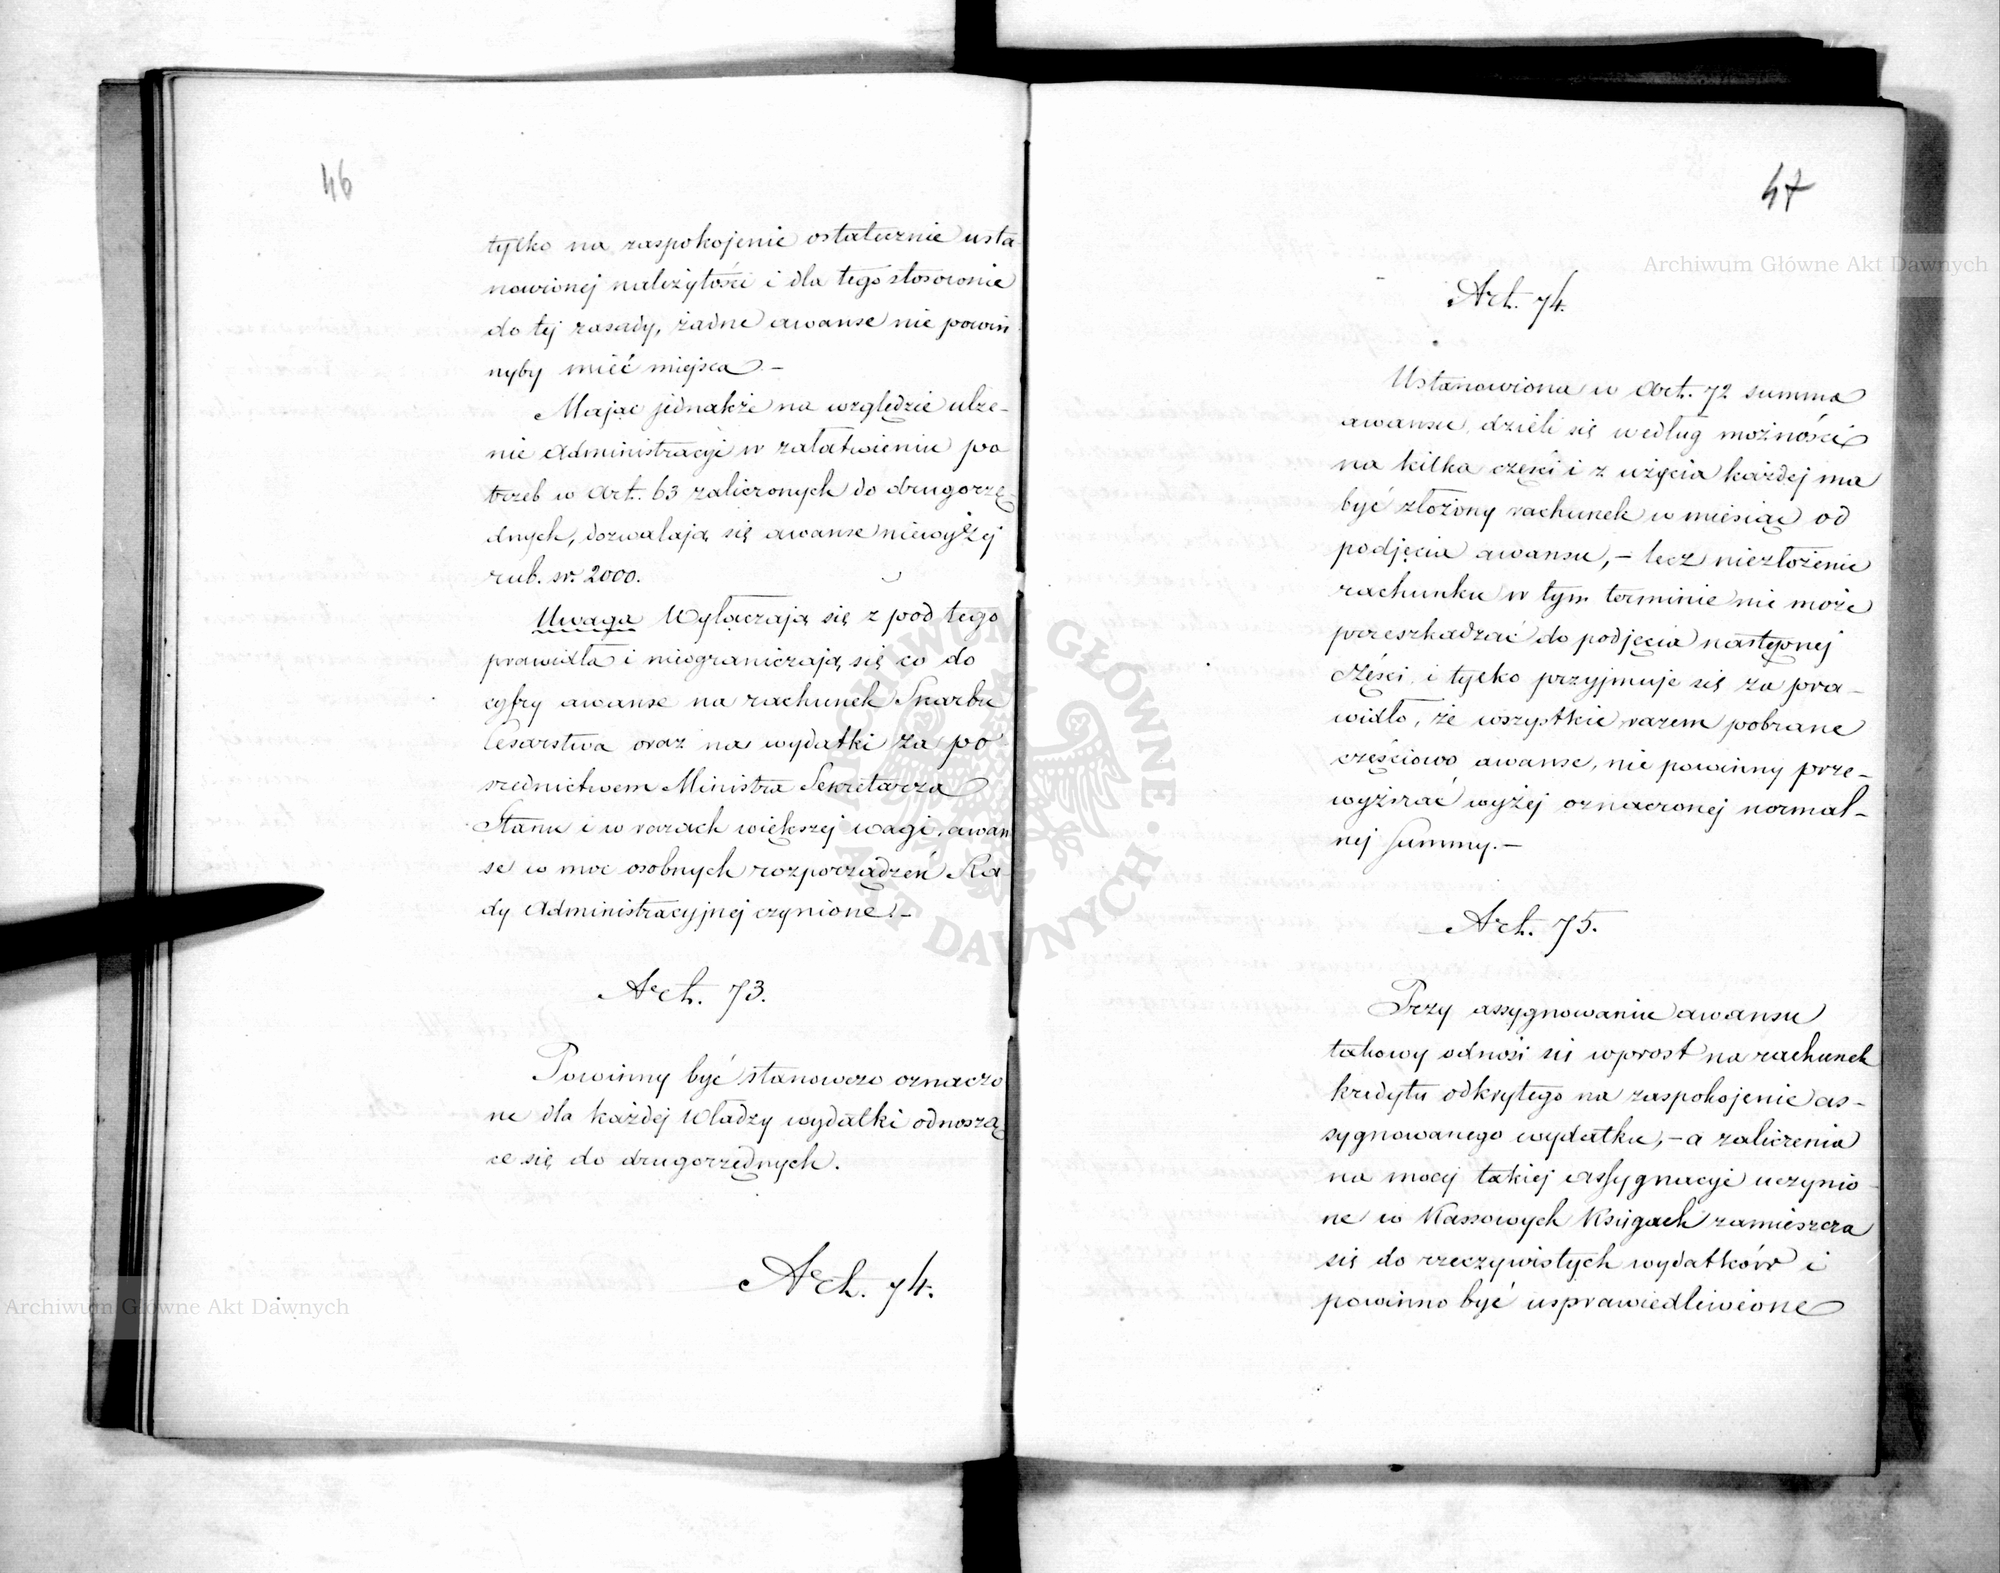 46
tylko na zaspokojenie ostatecznie usta
nowionej należytości i dla tego stosownie
do tej zasady, żadne awanse nie powin
nyby mieć miejsca. –
Mając jednakże na względzie ulże-
nie Administracyi w załatwieniu po
trzeb w Art. 63 zaliczonych do drugorzę-
dnych, dozwalają się awanse niewyżej
rub. sr. 2000.
Uwaga Wyłączają się z pod tego
prawidła i nieograniczają się co do
cyfry awanse na rachunek Skarbu
Cesarstwa oraz na wydatki za po
srednictwem Ministra Sekretarza
Stanu i w razach większej wagi, awan
se w moc osobnych rozporządzeń Ra-
dy Administracyjnej czynione. –
Art. 73.
Powinny być stanowczo oznaczo
ne dla każdej Władzy wydatki odnoszą
ce się do drugorzędnych.
Art. 74.
47
Art. 74.
Ustanowiona w Art. 72 summa
awansu, dzieli się według możności
na kilka części i z użycia każdej ma
być złożony rachunek w miesiąc od
podjęcia awansu, – lecz niezłożenie
rachunku w tym terminie nie może
przeszkadzać do podjęcia następnej
części, i tylko przyjmuje się za pra-
widło, że wszystkie razem pobrane
częściowo awanse, nie powinny prze-
wyższać wyżej oznaczonej normal-
nej summy. –
Art. 75.
Przy assygnowaniu awansu
takowy odnosi się wprost na rachunek
kredytu odkrytego na zaspokojenie as-
sygnowanego wydatku, – a zaliczenia
na mocy takiej assygnacyi uczynio
ne w Kassowych Księgach zamieszcza
się do rzeczywistych wydatków i
powinno być usprawiedliwione
Archiwum Główne Akt Dawnych
Archiwum Główne Akt Dawnych
ARCHIWUM GŁÓWNE AKT DAWNYCH